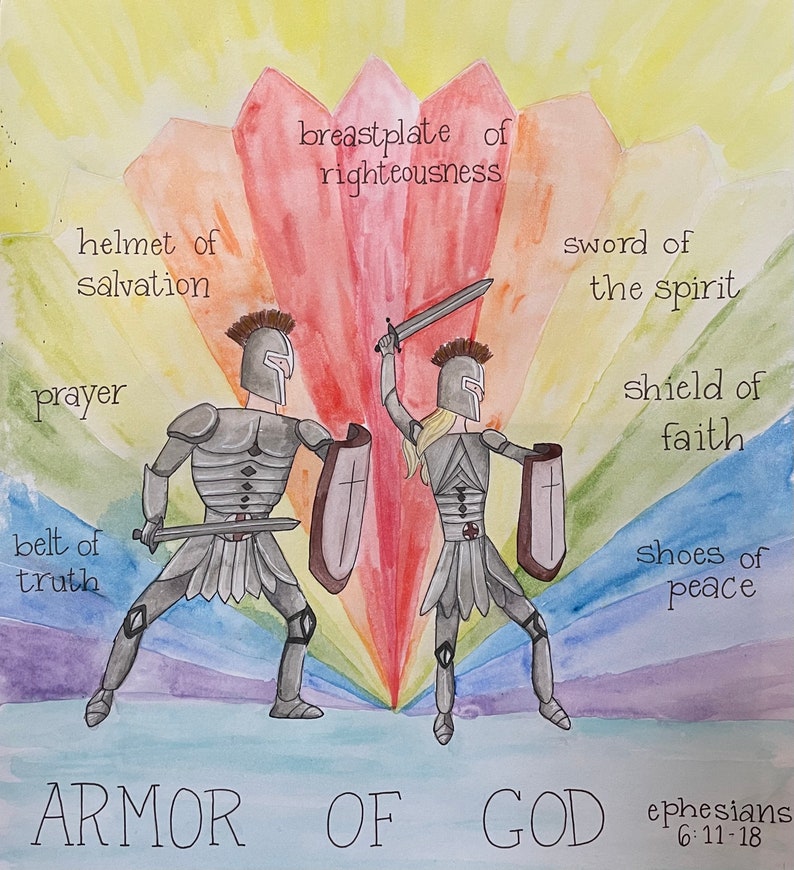 breastplate of
righteousness
helmet of
salvation
sword of
the spirit
prayer
shield of
faith
belt of
truth
shoes of
peace
ARMOR OF GOD
ephesians
6:11-18